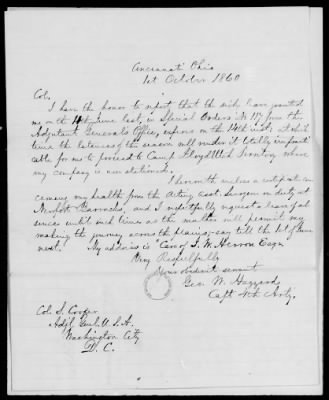 Cincinnati Ohio
1st October 1860
Col.
I have the honor to report that the sick leave granted
me on the 14th June last, in Special Orders No 117, from the
Adjutant General's Office, expires on the 14th inst. at which
time the lateness of the season will render it totally impracti
cable for me to proceed to Camp Floyd Utah Territory where
my company is now stationed.
I herewith enclose a certificate con
cerning my health from the Acting Asst. Surgeon on duty at
Newport Barracks, and I respectfully request a leave of ab
sence until such time as the weather will permit my
making the journey across the plains, say till the 1st of June
next. My address is "Care of J. W. Herron Esqr
Very Respectfully
Your obedient servant
Geo. W. Hazzard
Capt 4th Arty.
Col. S. Cooper
Adjt. Genl. U. S. A.
Washington City
D. C.